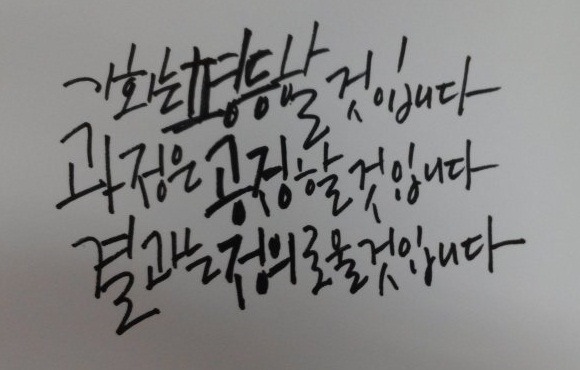 기회는 평등할 것입니다
과정은 공정할 것입니다
결과는 정의로울 것입니다